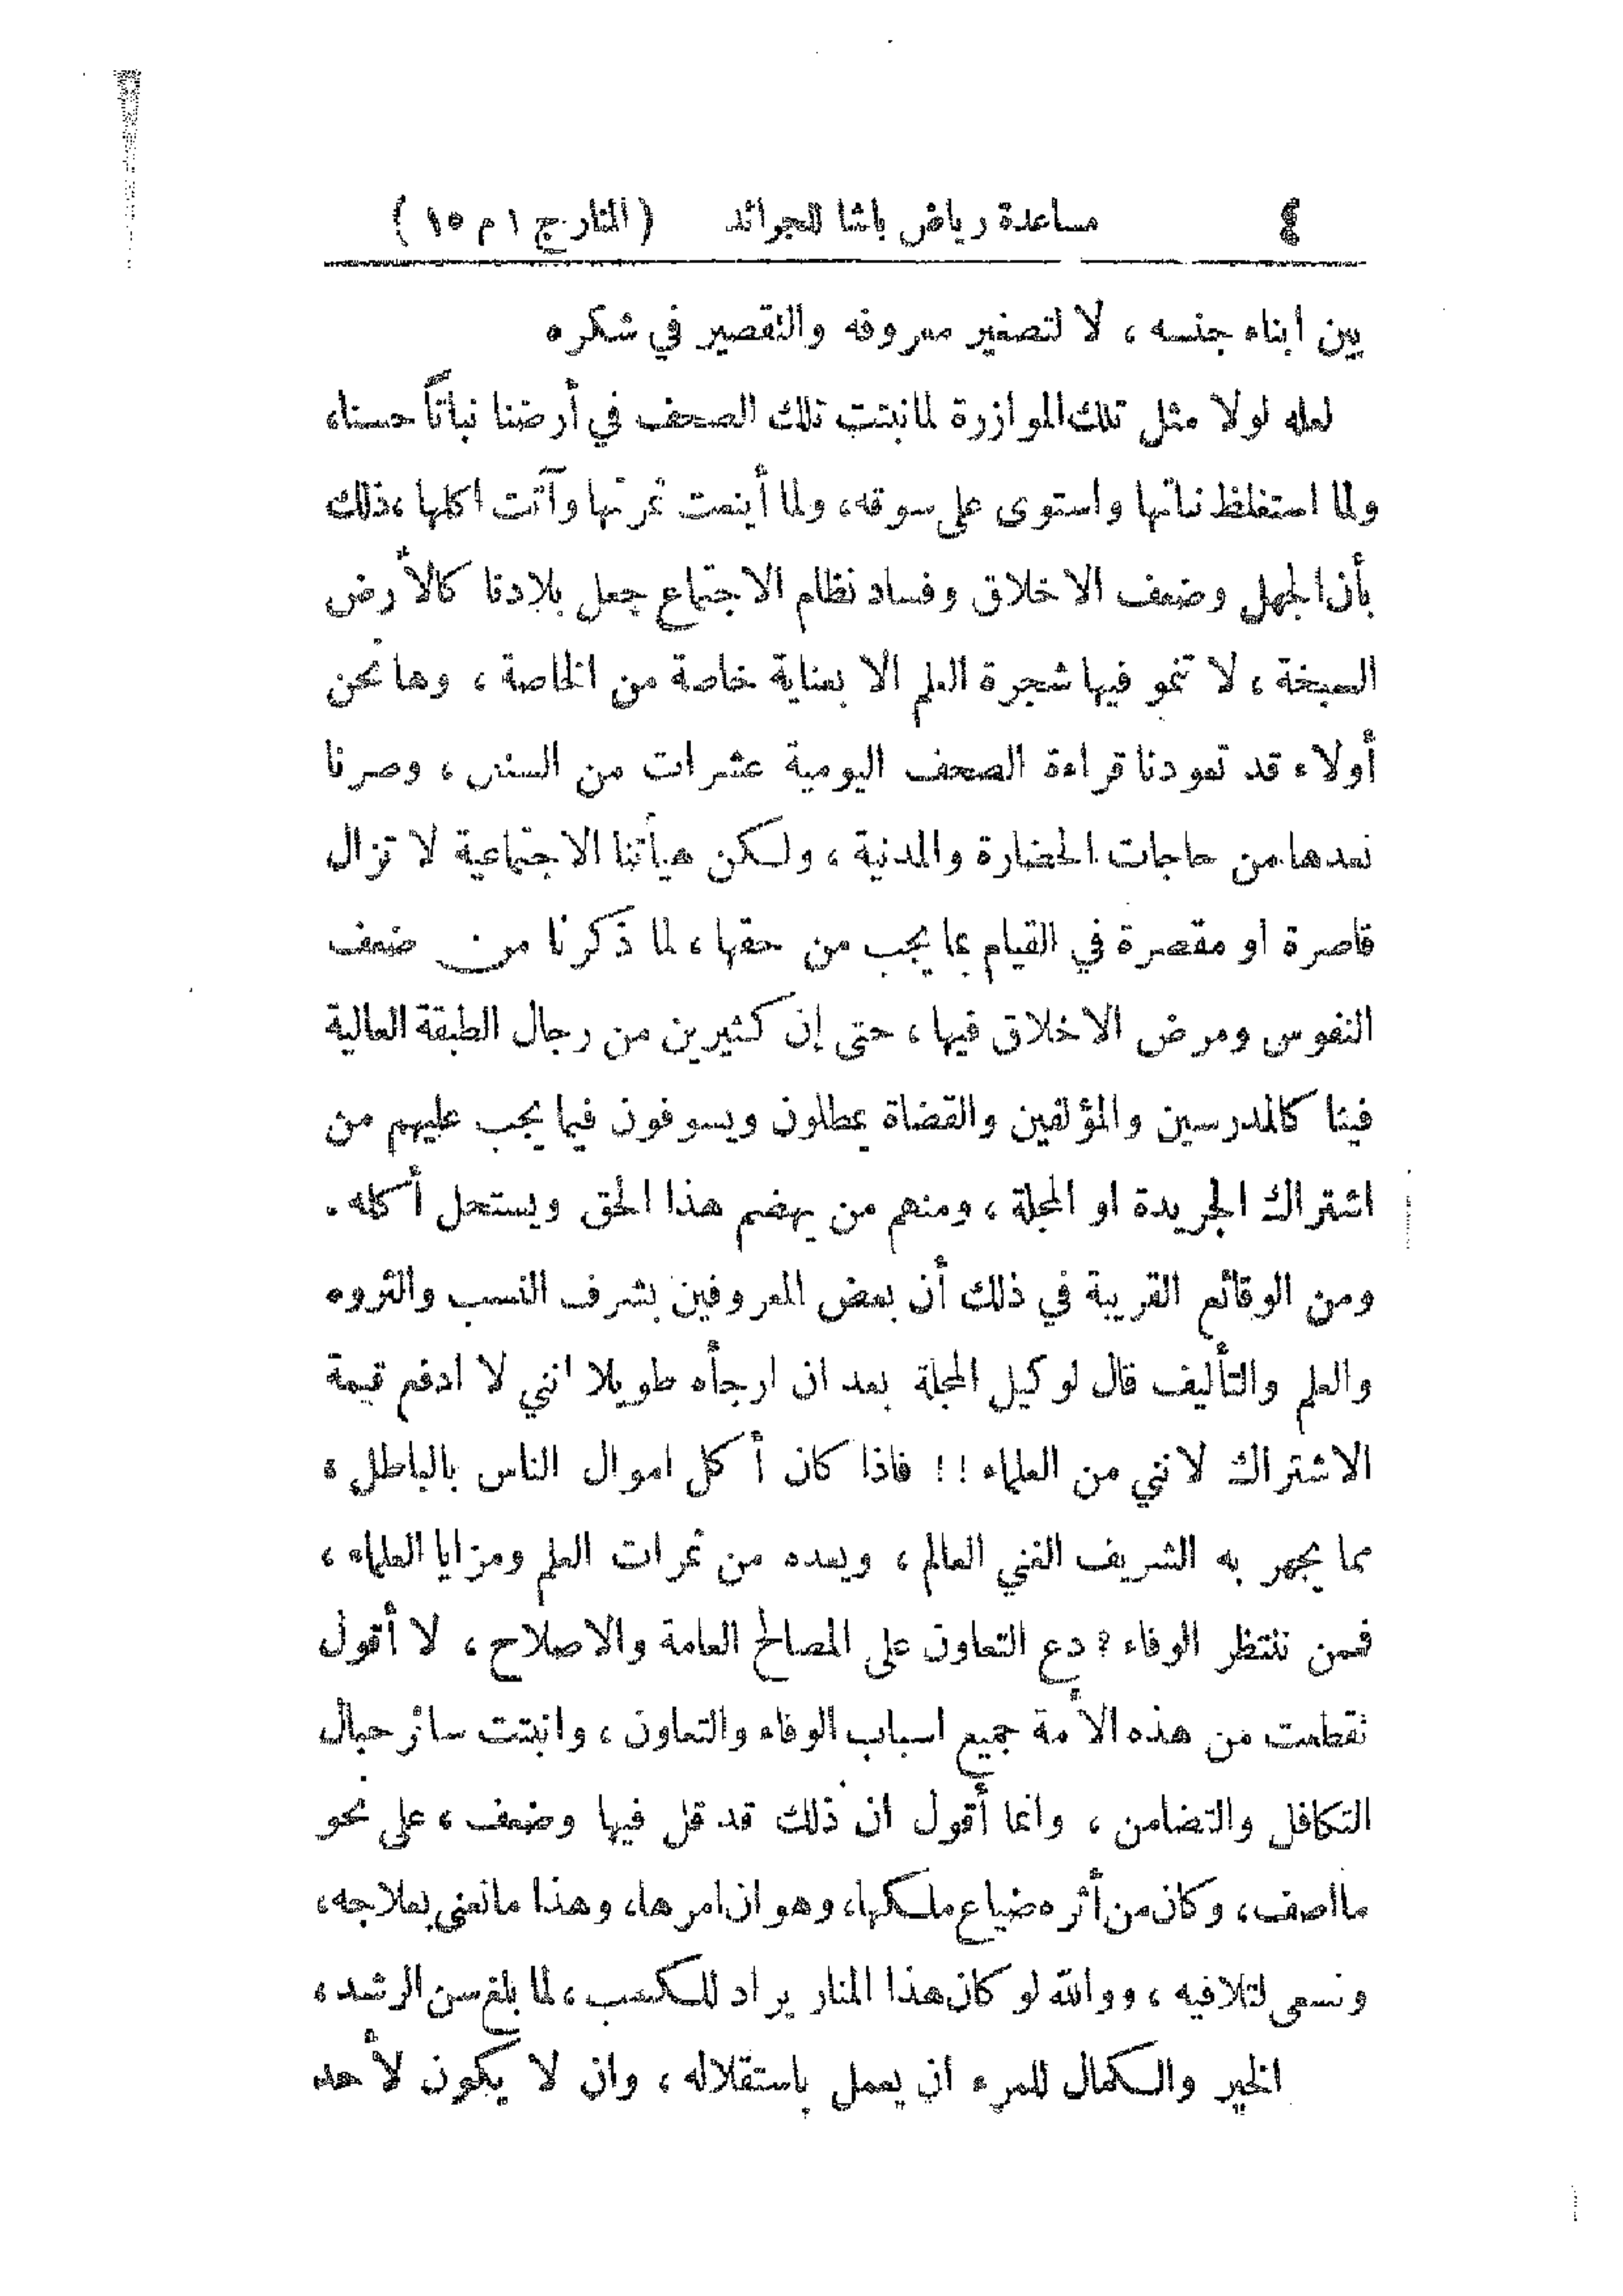 ٤ مساعدة رياض باشا للجرائد ( المنار ج ١ م ١٥ )
بين ابناء جنسه ، لا لتصغير معروفه والتقصير في شكره
لعله لولا مثل تلك الموازرة لما نبتت تلك الصحف في أرضنا نباتاً حسنا،
ولما استغلظ نباتها واستوى على سوقه، ولما أينعت ثمرتها وآتت اكلها ،ذلك
بأن الجهل وضعف الاخلاق وفساد نظام الاجتماع جعل بلادنا كالأرض
السبخة ، لا تنمو فيها شجرة العلم الا بعناية خاصة من الخاصة ، وها نحن
أولاء قد تعودنا قراءة الصحف اليومية عشرات من السنين ، وصرنا
نعدها من حاجات الحضارة والمدنية ، ولكن هيأتنا الاجتماعية لا تزال
قاصرة او مقصرة في القيام بما يجب من حقها ، لما ذكرنا من ضعف
النفوس ومرض الاخلاق فيها ، حتى إن كثيرين من رجال الطبقة العالية
فينا كالمدرسين والمؤلفين والقضاة يمطلون ويسوفون فيما يجب عليهم من
اشتراك الجريدة او المجلة ، ومنهم من يهضم هذا الحق ويستحل أكله .
ومن الوقائع القريبة في ذلك أن بعض المعروفين بشرف النسب والثروه
والعلم والتأليف قال لوكيل المجلة بعد ان ارجأه طويلا انني لا ادفع قيمة
الاشتراك لانني من العلماء !! فاذا كان أكل اموال الناس بالباطل ،
مما يجهر به الشريف الغني العالم ، ويعده من ثمرات العلم ومزايا العلماء ،
فمن ننتظر الوفاء ؟ دع التعاون على المصالح العامة والاصلاح ، لا أقول
تقطعت من هذه الأمة جميع اسباب الوفاء والتعاون ، وانبتت سائر حبال
التكافل والتضامن ، وانما أقول ان ذلك قد قل فيها وضعف ، على نحو
ما أصف، وكان من أثره ضياع ملكها، وهوان امرها، وهذا ما نعنى بعلاجه،
ونسعى لتلافيه ، ووالله لو كان هذا المنار يراد للكسب ، لما بلغ سن الرشد ،
الخير والكمال للمرء ان يعمل باستقلاله ، وان لا يكون لأحد